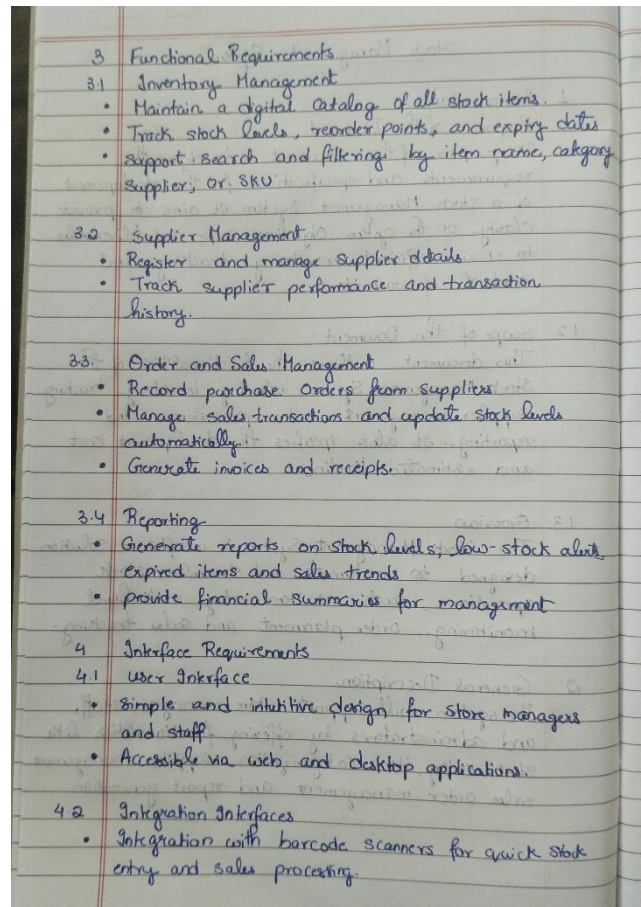 3 Functional Requirements
3.1 Inventory Management
• Maintain a digital catalog of all stock items.
• Track stock levels, reorder points, and expiry dates
• Support search and filtering by item name, category
Supplier, or SKU
3.2 Supplier Management
• Register and manage supplier details
• Track supplier performance and transaction
history.
3.3. Order and Sales Management
• Record purchase orders from suppliers
• Manage sales transactions and update stock levels
automatically
• Generate invoices and receipts.
3.4 Reporting
• Generate reports on stock levels, low-stock alerts
expired items and sales trends
• provide financial summaries for management
4 Interface Requirements
4.1 user Interface
• Simple and intutitive design for store managers
and staff
• Accessible via web and desktop applications.
4.2 Integration Interfaces
• Integration with barcode scanners for quick stock
entry and sales processing.